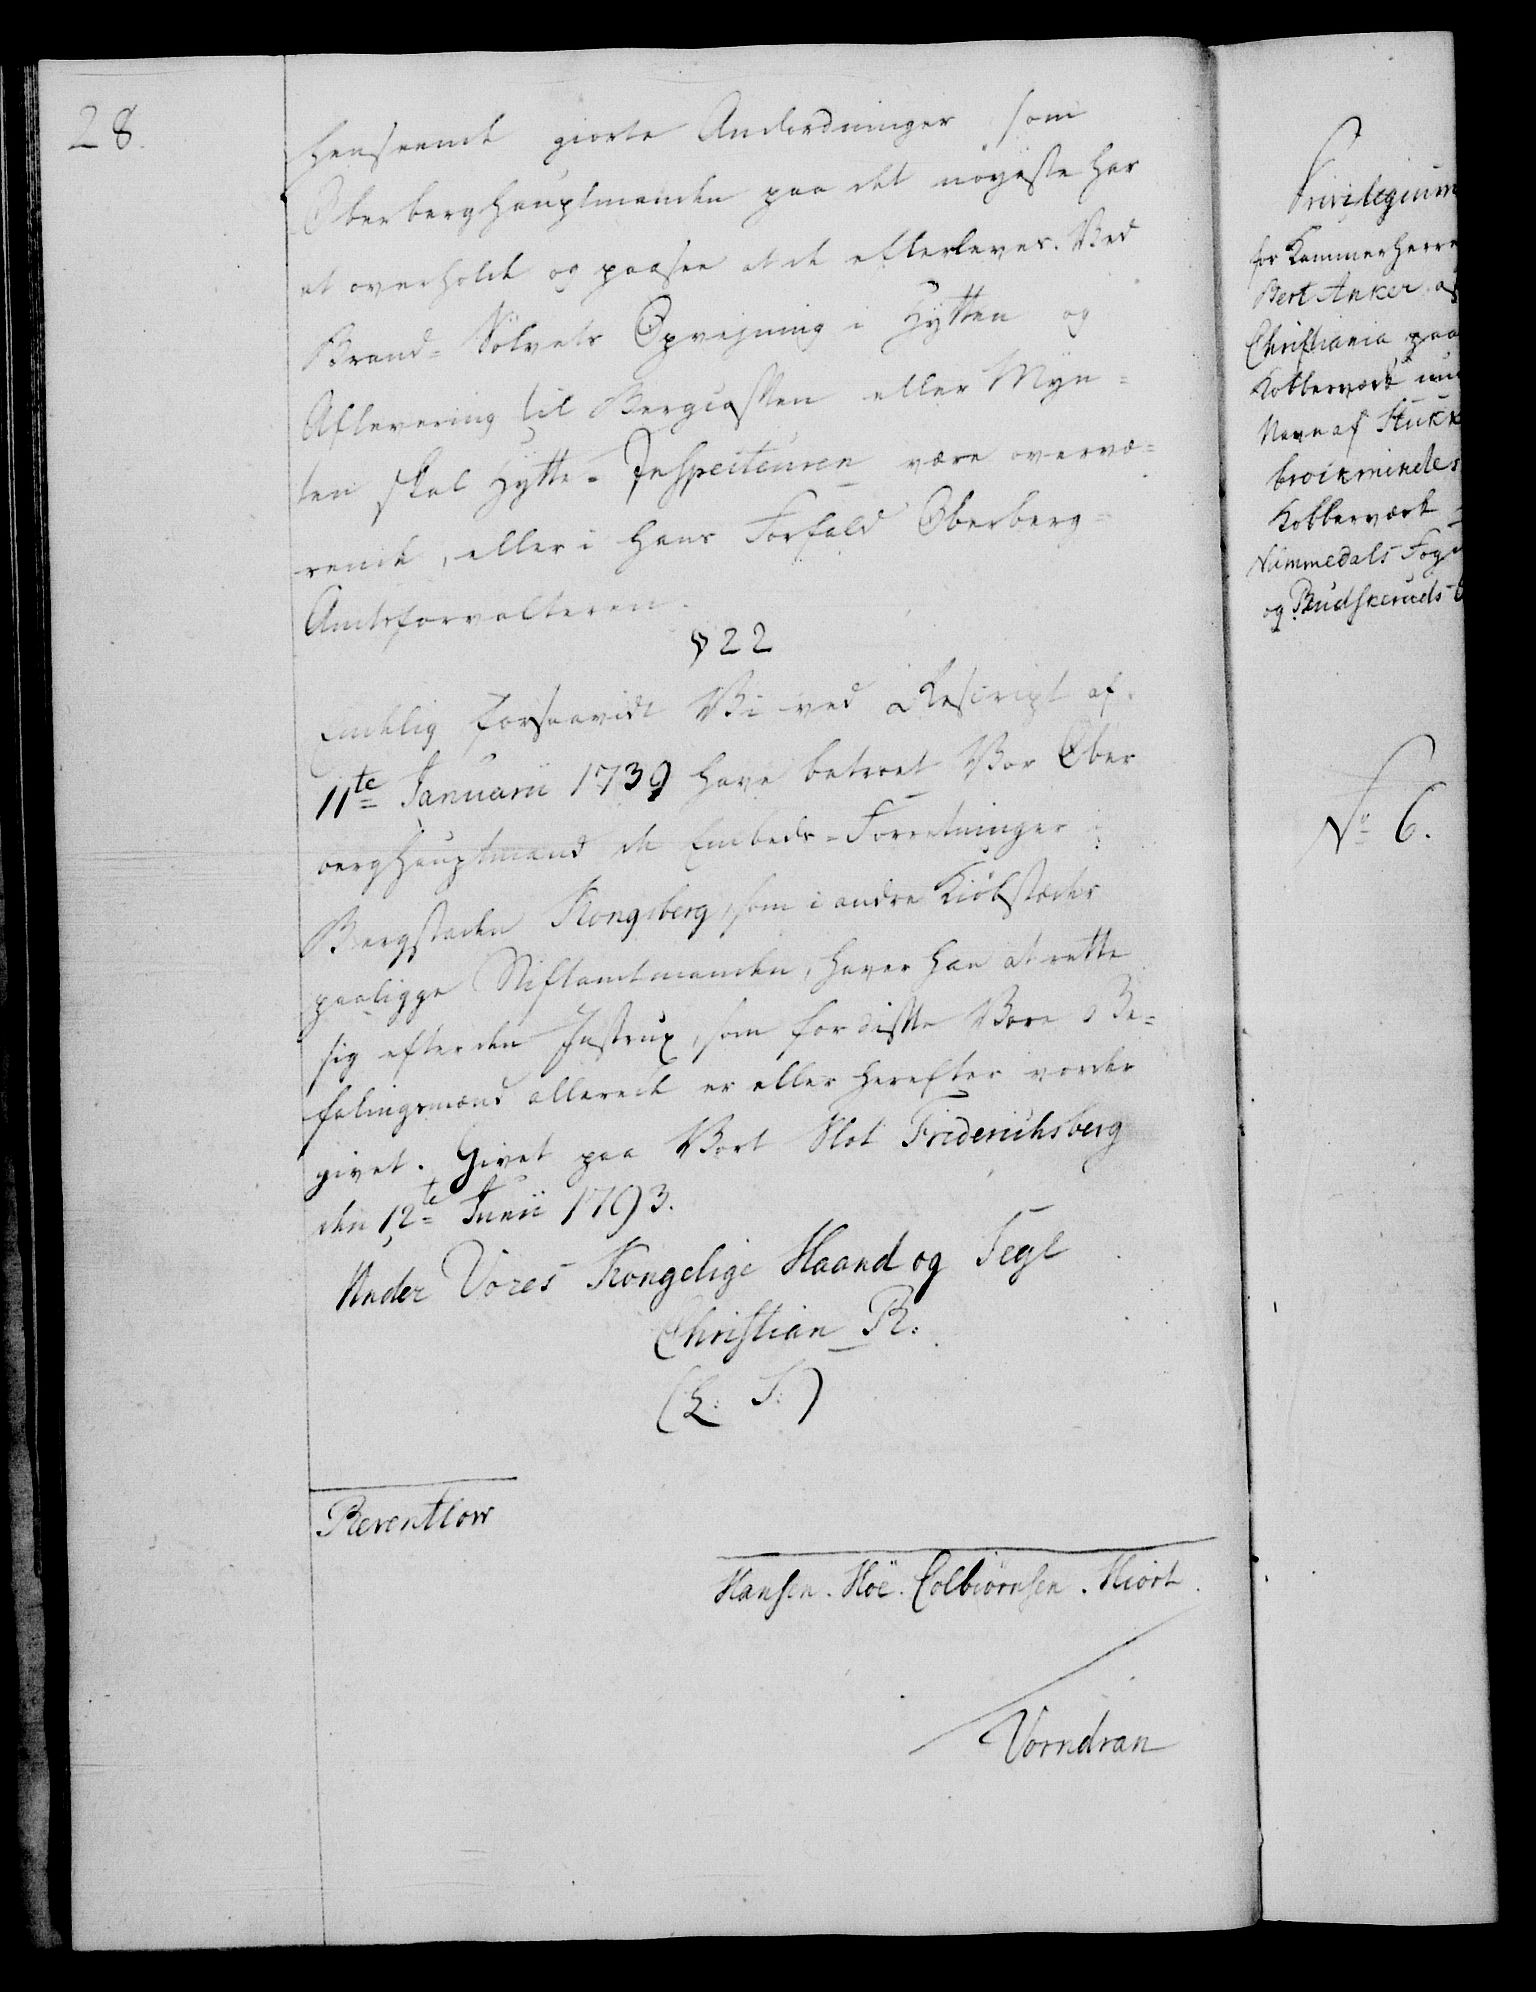 28.
henseende giorte Anordninger som
Oberberghauptmanden paa det nøyeste har
at overholde og paasee at de efterleves. Ved
Brand=Sølvets Opvejning i Hytten og
Aflevering til Bergcassen eller Myn=
ten skal Hytte=Inspecteuren være overvæ=
rende, eller i hans Forfald Oberberg=
Amtsforvalteren.
§ 22
Endelig forsaavidt Vi ved Rescript af
11te Januarii 1739 have betroet Vor Ober
berghauptmand de Embeds=Forretninger i
Bergstaden Kongsberg, som i andre Kiøbstæder
paaligge Stiftamtmanden, haver han at rette
sig efter den Instrux, som for disse Vore Be=
falingsmænd allerede er eller herefter vorder
givet. Givet paa Vort Slot Friderichsberg
den 12te Junii 1793.
Under Vores Kongelige Haand og Segl
Christian R.
(L. S.)
Reventlow
Hansen. Höe. Colbiørnsen. Hiort.
Vorndran
Privilegium
for Kammerherre
Bert Anker af
Christiania paa
Kobberværk
Navn af
Kobberværk
Nummedals Fog
og Budskeruds
No 6.